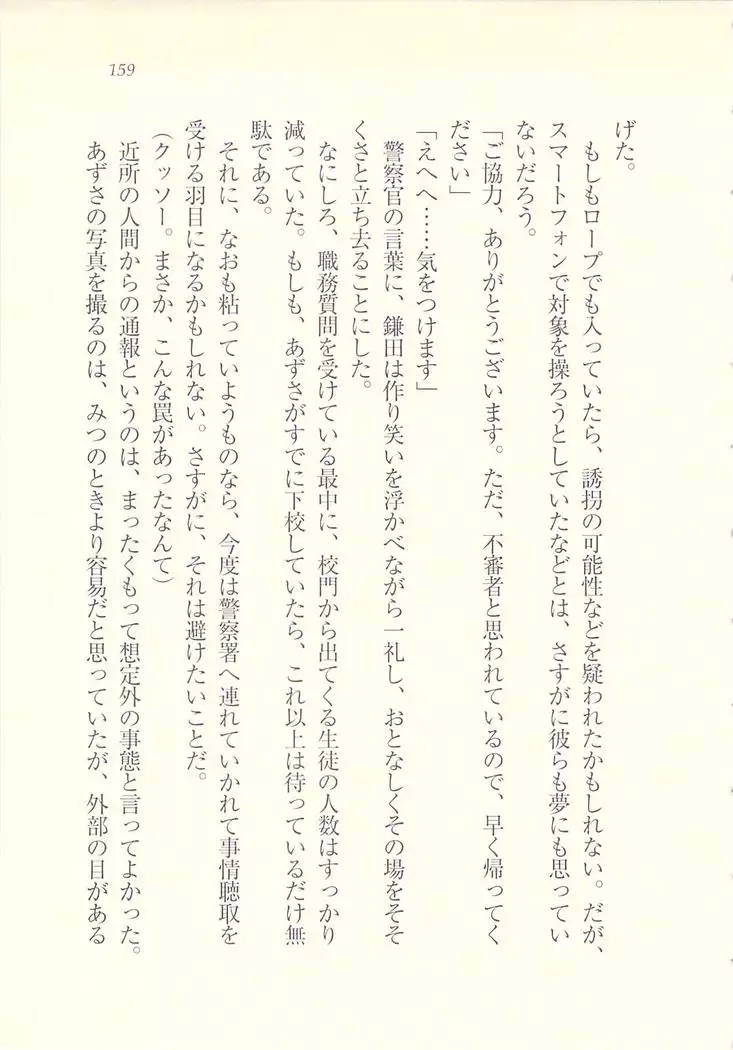 159
げた。
　もしもロープでも入っていたら、誘拐の可能性などを疑われたかもしれない。だが、
スマートフォンで対象を操ろうとしていたなどとは、さすがに彼らも夢にも思ってい
ないだろう。
「ご協力、ありがとうございます。ただ、不審者と思われているので、早く帰ってく
ださい」
「えへへ……気をつけます」
　警察官の言葉に、鎌田は作り笑いを浮かべながら一礼し、おとなしくその場をそそ
くさと立ち去ることにした。
　なにしろ、職務質問を受けている最中に、校門から出てくる生徒の人数はすっかり
減っていた。もしも、あずさがすでに下校していたら、これ以上は待っているだけ無
駄である。
　それに、なおも粘っていようものなら、今度は警察署へ連れていかれて事情聴取を
受ける羽目になるかもしれない。さすがに、それは避けたいことだ。
（クッソー。まさか、こんな罠があったなんて）
　近所の人間からの通報というのは、まったくもって想定外の事態と言ってよかった。
　あずさの写真を撮るのは、みつのときより容易だと思っていたが、外部の目がある